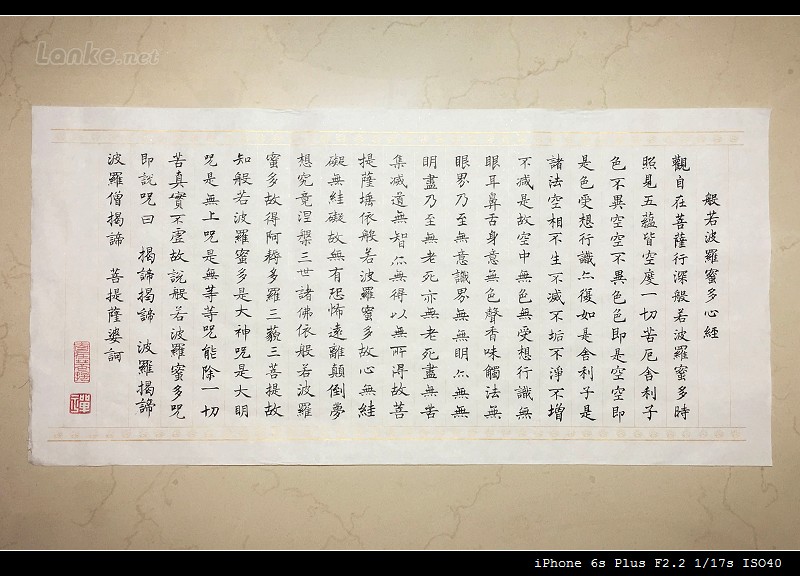 Lanke.net
般若波羅蜜多心經
觀自在菩薩行深般若波羅蜜多時
照見五蘊皆空度一切苦厄舍利子
色不異空空不異色色即是空空即
是色受想行識亦復如是舍利子是
諸法空相不生不滅不垢不淨不增
不減是故空中無色無受想行識無
眼耳鼻舌身意無色聲香味觸法無
眼界乃至無意識界無無明亦無無
明盡乃至無老死亦無老死盡無苦
集滅道無智亦無得以無所得故菩
提薩埵依般若波羅蜜多故心無絓
礙無絓礙故無有恐怖遠離顛倒夢
想究竟涅槃三世諸佛依般若波羅
蜜多故得阿耨多羅三藐三菩提故
知般若波羅蜜多是大神呪是大明
呪是無上呪是無等等呪能除一切
苦真實不虛故說般若波羅蜜多呪
即說呪曰 揭諦揭諦 波羅揭諦
波羅僧揭諦 菩提薩婆訶
iPhone 6s Plus F2.2 1/17s ISO40